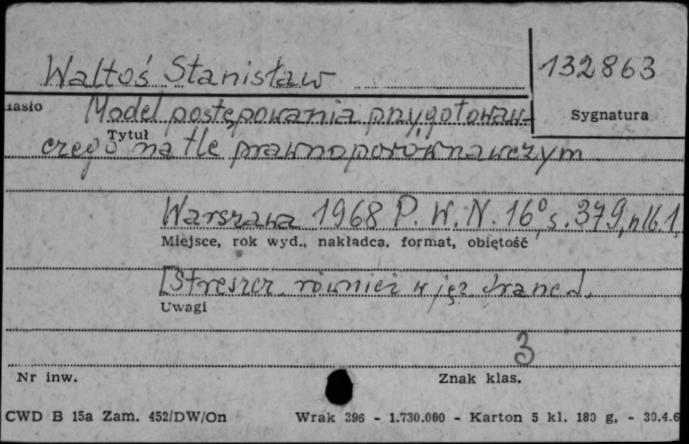 Waltoś Stanisław
132863
Hasło
Model postępowania przygotowaw-
Sygnatura
Tytuł
czego na tle prawnoporównawczym
Warszawa 1968 P.W.N. 16°, s. 379, nlb. 1
Miejsce, rok wyd., nakładca, format, objętość
[Streszcz. również w jęz. franc.].
Uwagi
3
Nr inw.
Znak klas.
CWD B 15a Zam. 452/DW/On
Wrak 396 - 1.730.000 - Karton 5 kl. 180 g, - 30.4.6